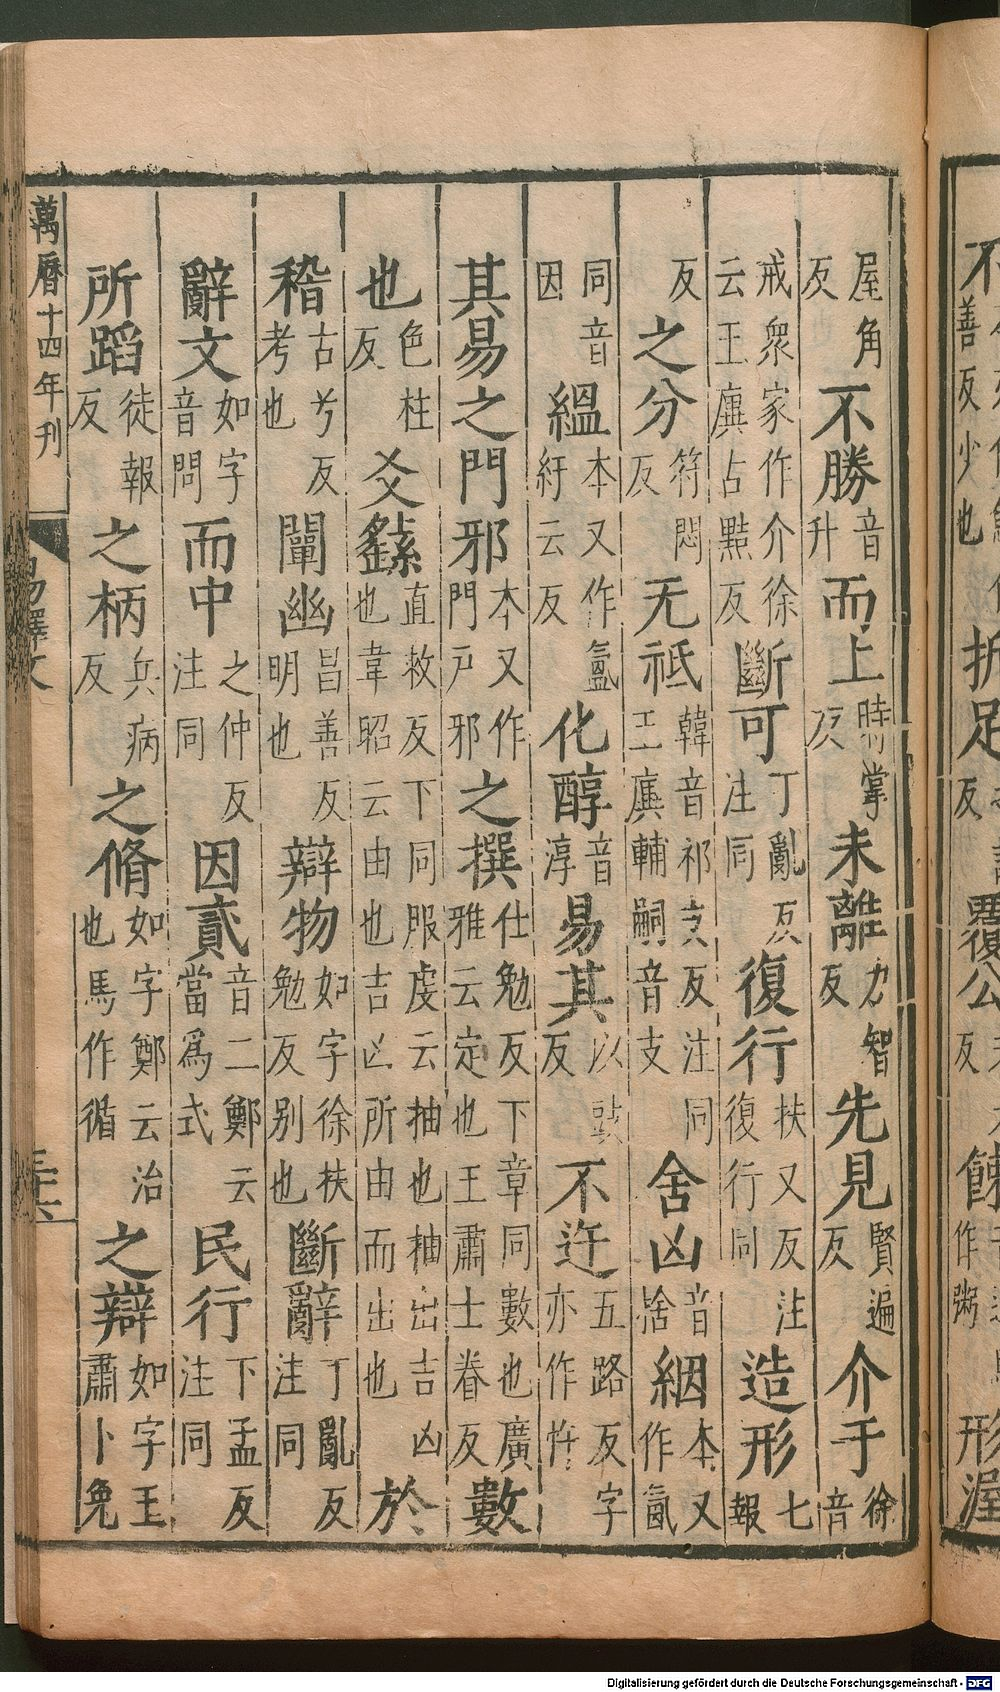 屋角反不勝音升而上時掌反未離力智反先見賢遍反介于徐音
戒衆家作介徐云王廙古黠反斷可丁亂反注同復行扶又反注復行同造形七報
反之分符悶反无祗韓音祁支反注同王廙輔嗣音支舍凶音捨絪本又作氤
同音因縕本又作氳紆云反化醇音淳易其以豉反不迕五路反字亦作忤
其易之門邪本又作門戸邪之撰仕勉反下章同數也廣雅云定也王肅士眷反數
也色柱反爻繇直救反下同服虔云抽也抽出吉凶也韋昭云由也吉凶所由而出也於
稽古兮反考也闡幽昌善反明也辯物如字徐扶勉反别也斷辭丁亂反注同
辭文如字音問而中之仲反注同因貳音二鄭云當爲式民行下孟反注同
所蹈徒報反之柄兵病反之脩如字鄭云治也馬作循之辯如字王肅卜免
萬曆十四年刊
易釋文